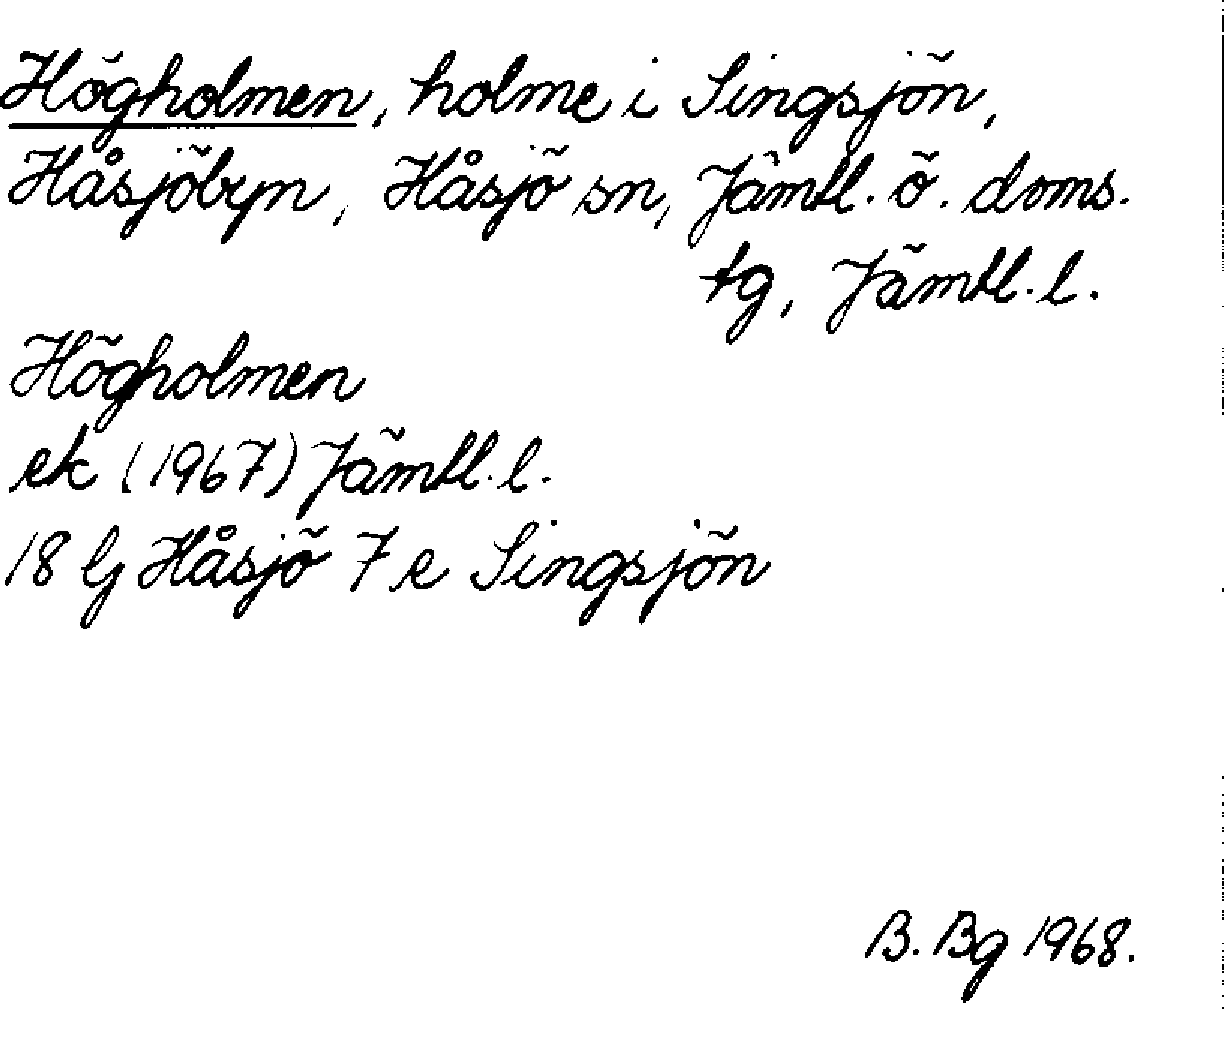 Högholmen, holme i Singsjön,
Håsjöbyn, Håsjö sn, Jämtl. ö. doms.
tg, Jämtl. l.
Högholmen
ek (1967) Jämtl. l.
18 Gj Håsjö 7 e Singsjön
B. Bg 1968.